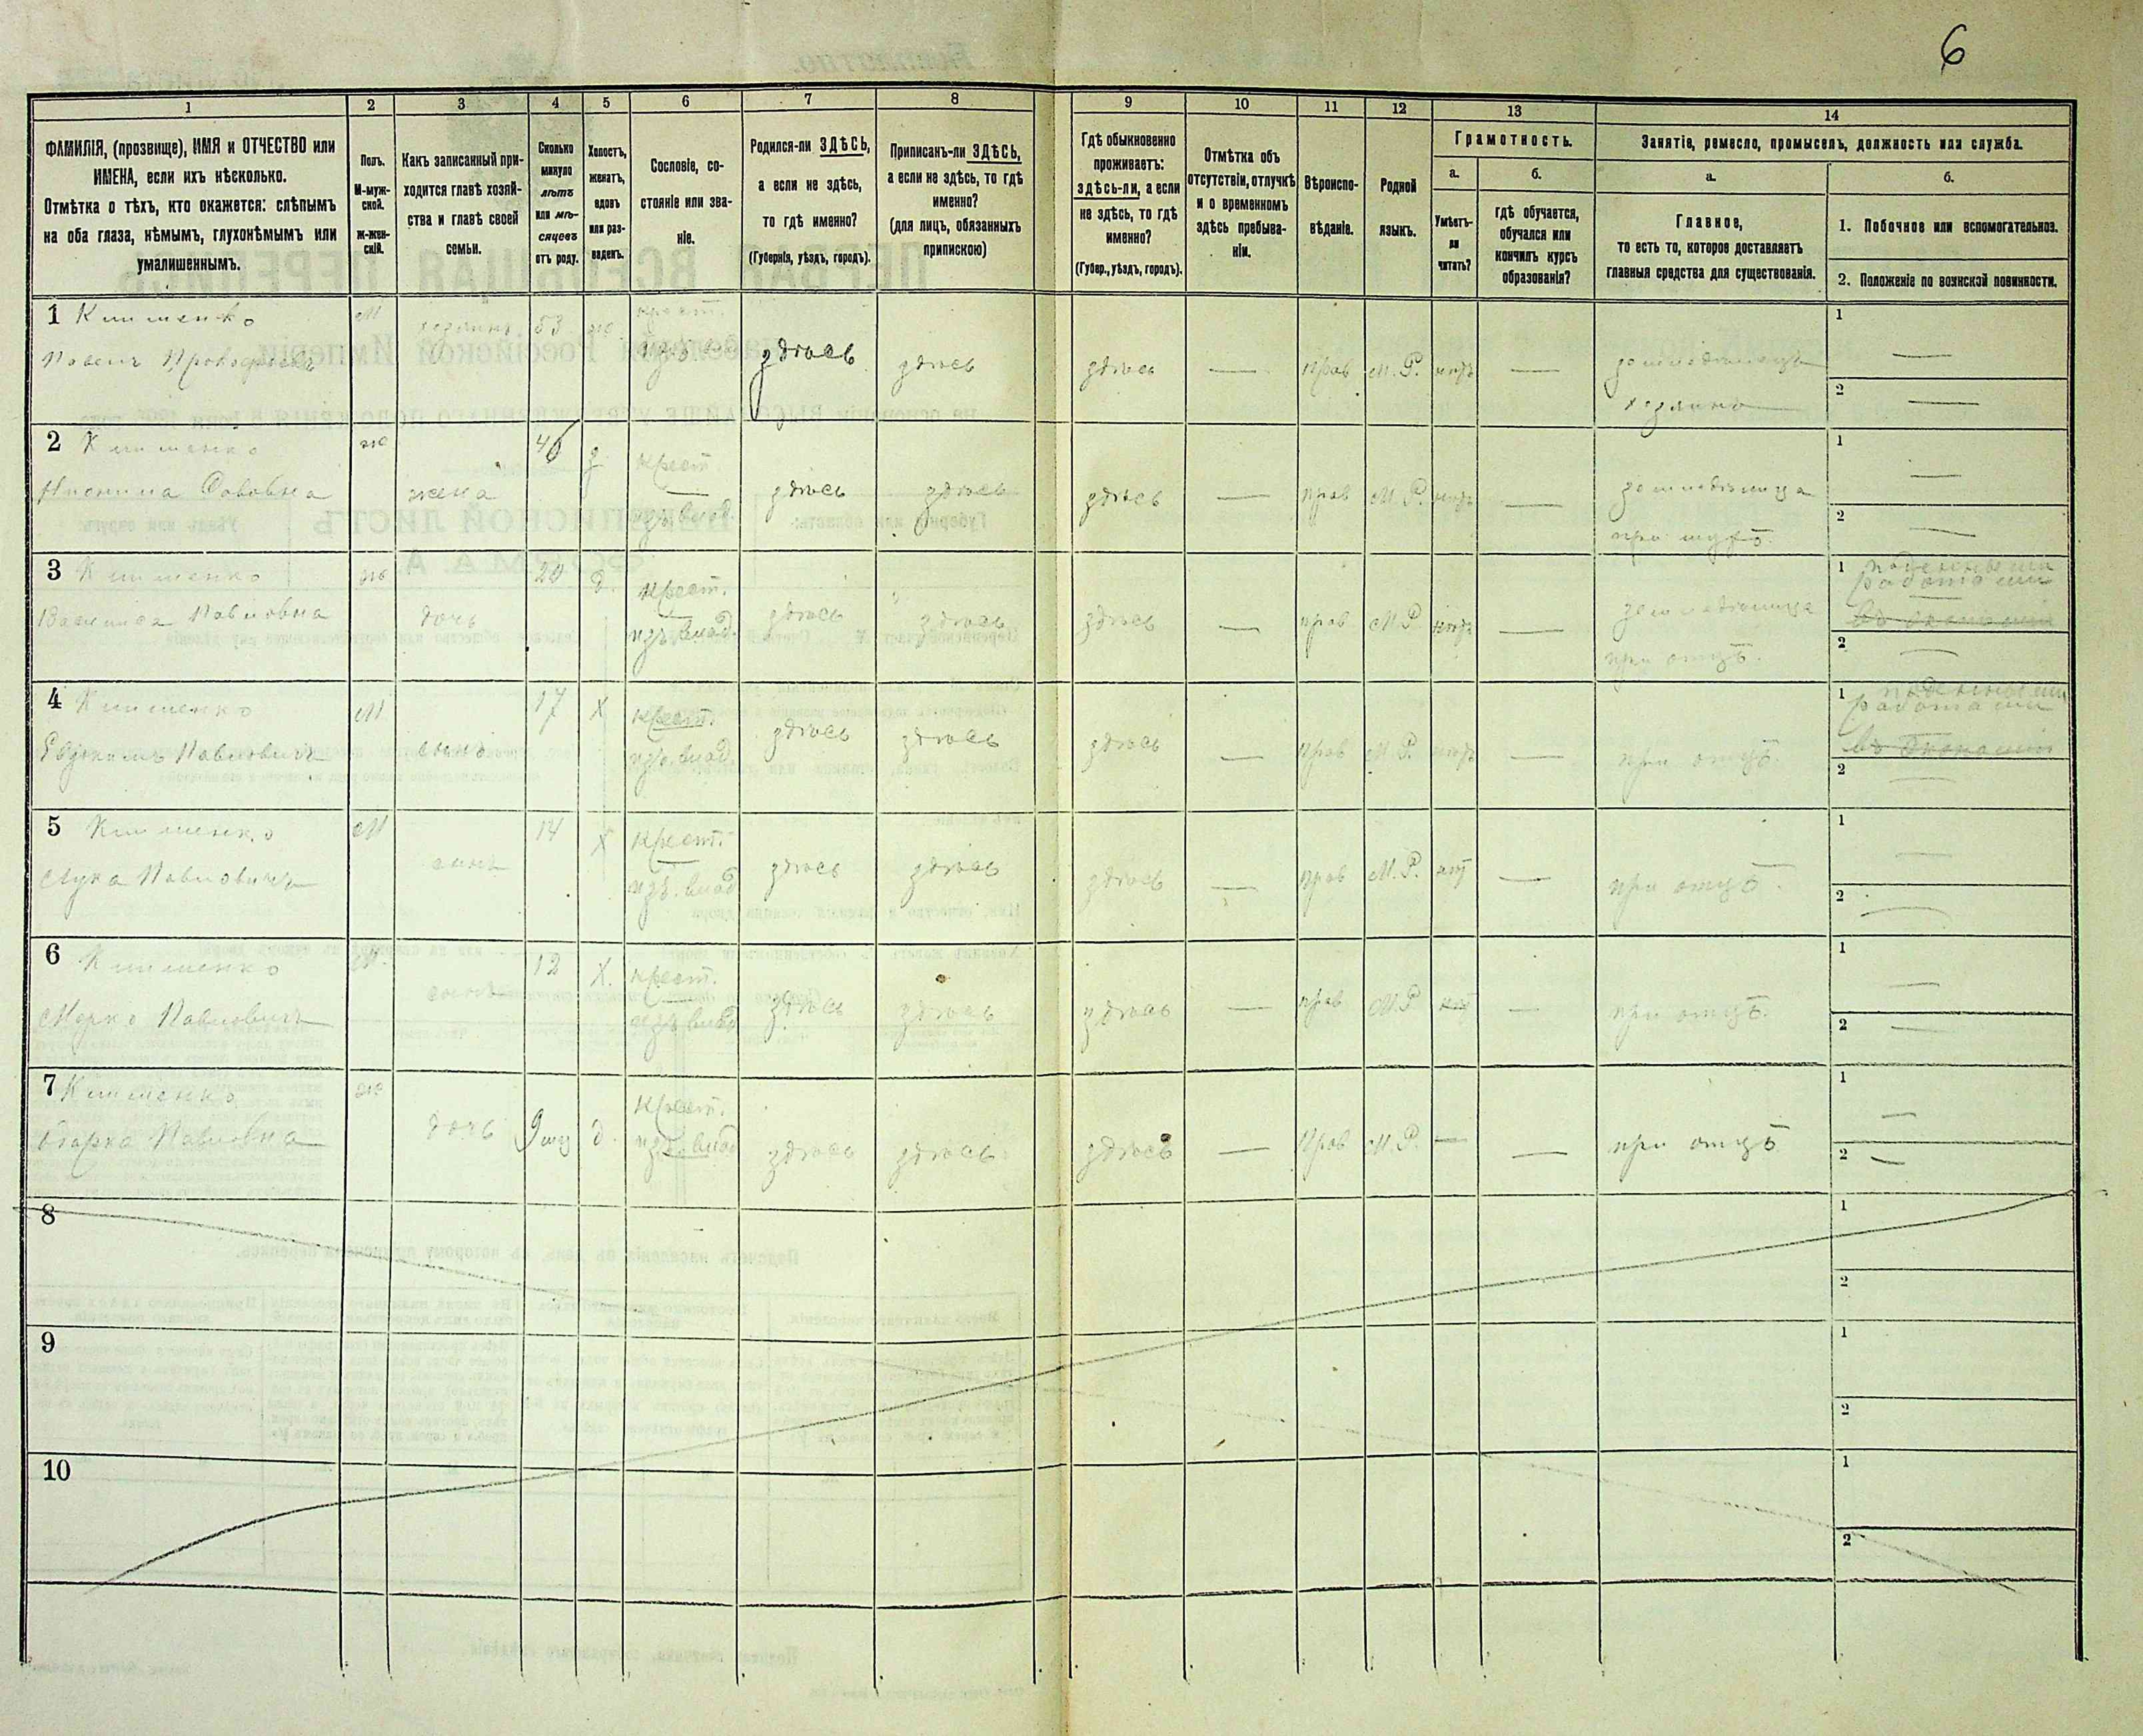 6
1 2 3 4 5 6 7 8 9 10 11 12 13 14
ФАМИЛІЯ, (прозвище), ИМЯ и ОТЧЕСТВО или
ИМЕНА, если ихъ нѣсколько.
Отмѣтка о тѣхъ, кто окажется: слѣпымъ
на оба глаза, нѣмымъ, глухонѣмымъ или
умалишеннымъ.
Полъ.
М-муж-
ской.
Ж-жен-
скій.
Какъ записанный при-
ходится главѣ хозяй-
ства и главѣ своей
семьи.
Сколько
минуло
лѣтъ
или мѣ-
сяцевъ
отъ роду.
Холостъ,
женатъ,
вдовъ
или раз-
веденъ.
Сословіе, со-
стояніе или зва-
ніе.
Родился-ли ЗДѢСЬ,
а если не здѣсь,
то гдѣ именно?
(Губернія, уѣздъ, городъ).
Приписанъ-ли ЗДѢСЬ,
а если не здѣсь, то гдѣ
именно?
(для лицъ, обязанныхъ
припискою)
Гдѣ обыкновенно
проживаетъ:
здѣсь-ли, а если
не здѣсь, то гдѣ
именно?
(Губер., уѣздъ, городъ).
Отмѣтка объ
отсутствіи, отлучкѣ
и о временномъ
здѣсь пребыва-
ніи.
Вѣроиспо-
вѣданіе.
Родной
языкъ.
Грамотность.
а.
Умѣетъ-
ли
читать?
б.
гдѣ обучается,
обучался или
кончилъ курсъ
образованія?
Занятіе, ремесло, промыселъ, должность или служба.
а.
Главное,
то есть то, которое доставляетъ
главныя средства для существованія.
б.
1. Побочное или вспомогательное.
2. Положеніе по воинской повинности.
1 Клименко М хозяинъ 53 крест. 1
Павелъ Прокофьевъ здѣсь здѣсь здѣсь — прав М.Р. нѣтъ — —
хозяинъ 2 —
2 Клименко ж 46 з крест. 1
жена здѣсь здѣсь здѣсь — прав М.Р. нѣтъ — —
из. влад. при мужѣ. 2 —
3 Клименко ж 20 д. крест. 1 поденными
работами
Василиса Павловна дочь из. влад. здѣсь здѣсь здѣсь — прав М.Р нѣтъ —
при отцѣ. 2 —
4 Клименко М 17 Х крест. 1 поденными
работами
Евдокимъ Павловичъ сынъ из. влад. здѣсь здѣсь здѣсь — прав М.Р. нѣтъ — при отцѣ. въ экономіи
2 —
5 Клименко М 14 Х крест. 1
Лука Павловичъ сынъ из. влад здѣсь здѣсь здѣсь — прав М.Р. нѣт — при отцѣ. —
2 —
6 Клименко М. 12 Х. крест. 1
Марко Павловичъ сынъ из. влад здѣсь здѣсь здѣсь — прав М.Р нѣт — при отцѣ. —
2 —
7 Клименко ж крест. 1
Павловна дочь 9 мѣс д. из. влад здѣсь здѣсь здѣсь — прав М.Р. — — при отцѣ —
2 —
8 1
2
9 1
2
10 1
2